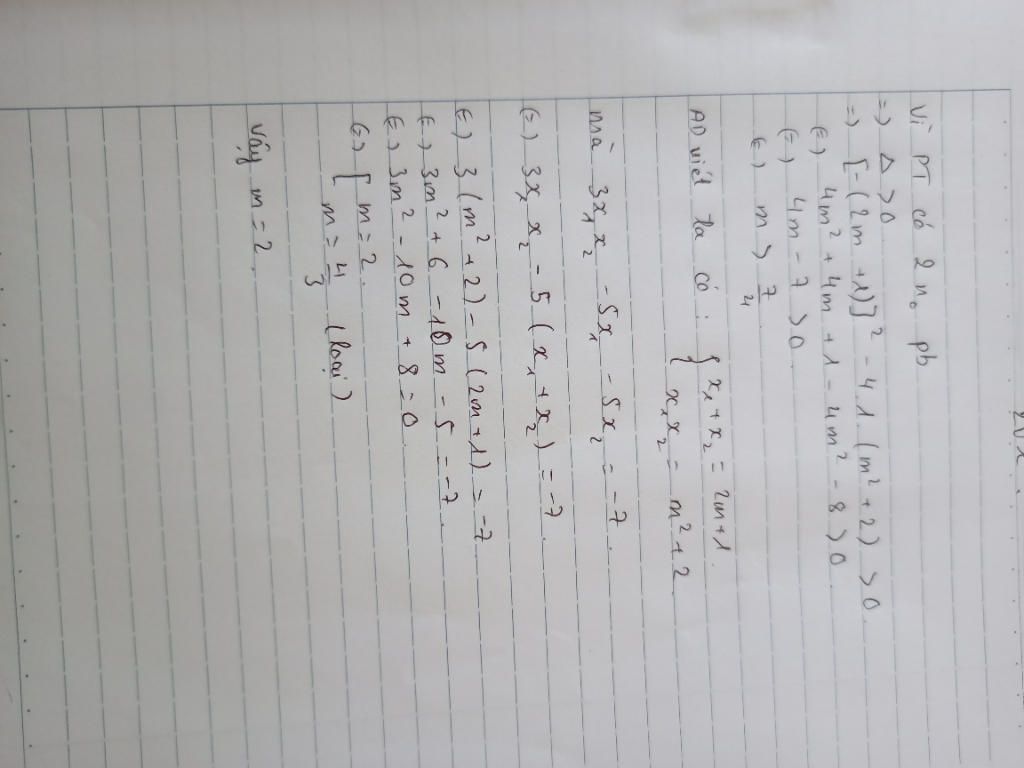 Vì PT có 2 no pb
=) Δ > 0
=) [-(2m + 1)]² - 4.1.(m² + 2) > 0
(=) 4m² + 4m + 1 - 4m² - 8 > 0
(=) 4m - 7 > 0
(=) m > 7/4
AD viét ta có : { x₁ + x₂ = 2m+1.
x₁x₂ = m² + 2
mà 3x₁x₂ - 5x₁ - 5x₂ = -7.
(=) 3x₁x₂ - 5(x₁ + x₂) = -7
(=) 3(m² + 2) - 5(2m + 1) = -7
(=) 3m² + 6 - 10m - 5 = -7
(=) 3m² - 10m + 8 = 0
(=) [ m = 2
m = 4/3 (loại)
Vậy m = 2